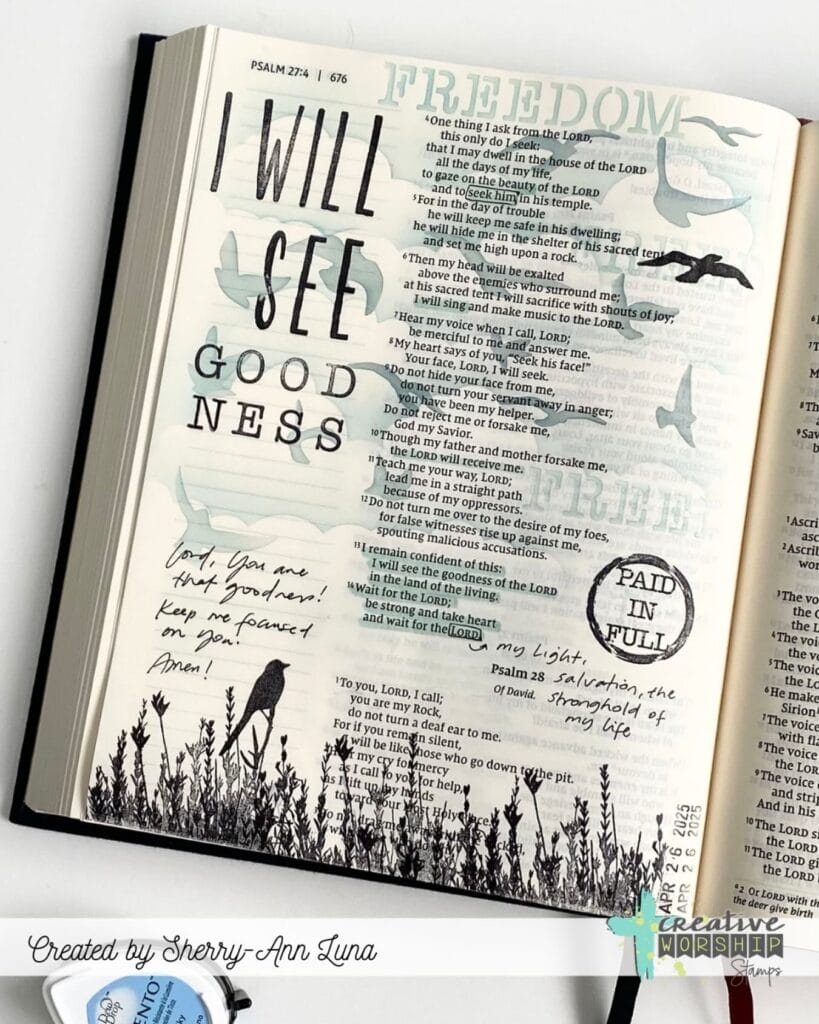 PSALM 27:4 | 676
FREEDOM
I WILL
SEE
GOOD
NESS
⁴One thing I ask from the LORD,
this only do I seek:
that I may dwell in the house of the LORD
all the days of my life,
to gaze on the beauty of the LORD
and to seek him in his temple.
⁵For in the day of trouble
he will keep me safe in his dwelling;
he will hide me in the shelter of his sacred tent
and set me high upon a rock.
⁶Then my head will be exalted
above the enemies who surround me;
at his sacred tent I will sacrifice with shouts of joy;
I will sing and make music to the LORD.
⁷Hear my voice when I call, LORD;
be merciful to me and answer me.
⁸My heart says of you, "Seek his face!"
Your face, LORD, I will seek.
⁹Do not hide your face from me,
do not turn your servant away in anger;
you have been my helper.
Do not reject me or forsake me,
God my Savior.
¹⁰Though my father and mother forsake me,
the LORD will receive me.
¹¹Teach me your way, LORD;
lead me in a straight path
because of my oppressors.
¹²Do not turn me over to the desire of my foes,
for false witnesses rise up against me,
spouting malicious accusations.
FREE
¹³I remain confident of this:
I will see the goodness of the LORD
in the land of the living.
¹⁴Wait for the LORD;
be strong and take heart
and wait for the LORD.
my light,
salvation, the
stronghold of
my life
PAID
IN
FULL
Lord, You are
that goodness!
Keep me focused
on You.
Amen!
Psalm 28
Of David.
¹To you, LORD, I call;
you are my Rock,
do not turn a deaf ear to me.
For if you remain silent,
I will be like those who go down to the pit.
my cry for mercy
as I call to you for help,
as I lift up my hands
toward your Most Holy Place.
APR 26 2025
APR 26 2025
¹Ascri
asc
²Ascrib
wor
³The vo
the G
the L
⁴The voi
the v
⁵The voic
the Lo
⁶He make
Sirion
⁷The voice
with fla
⁸The voice
⁹The voice
and strip
And in his
¹⁰The LORD s
the LORD
¹¹The LORD gi
the LORD
ᵃ2 Or LORD with th
the deer give birth
Created by Sherry-Ann Luna
Creative
WORSHIP
Stamps
Dew
Drop
MENTO